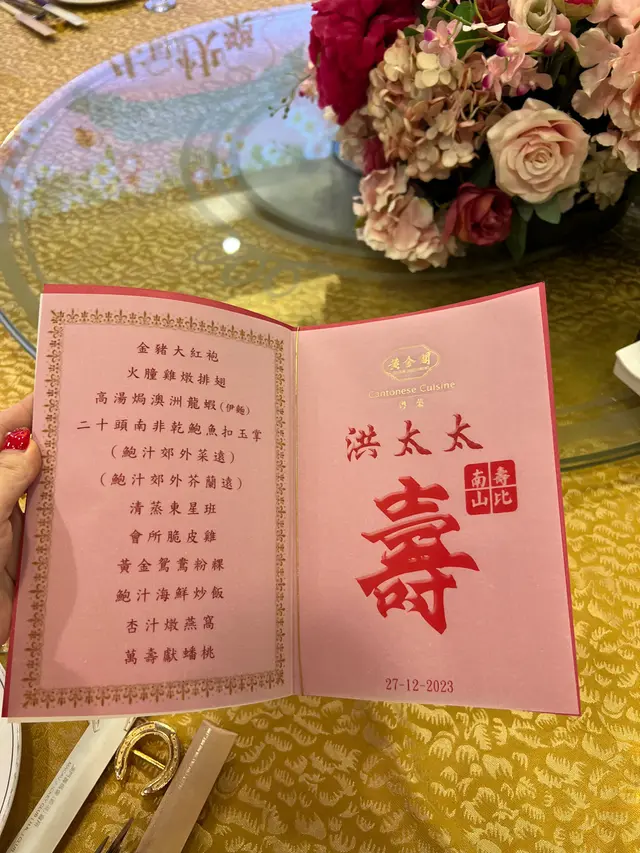 金豬大紅袍
火膧雞燉排翅
高湯焗澳洲龍蝦(伊麵)
二十頭南非乾鮑魚扣玉掌
(鮑汁郊外菜遠)
(鮑汁郊外芥蘭遠)
清蒸東星班
會所脆皮雞
黃金鴛鴦粉粿
鮑汁海鮮炒飯
杏汁燉燕窩
萬壽獻蟠桃
Cantonese Cuisine
粵菜
洪太太
壽比南山
壽
27-12-2023